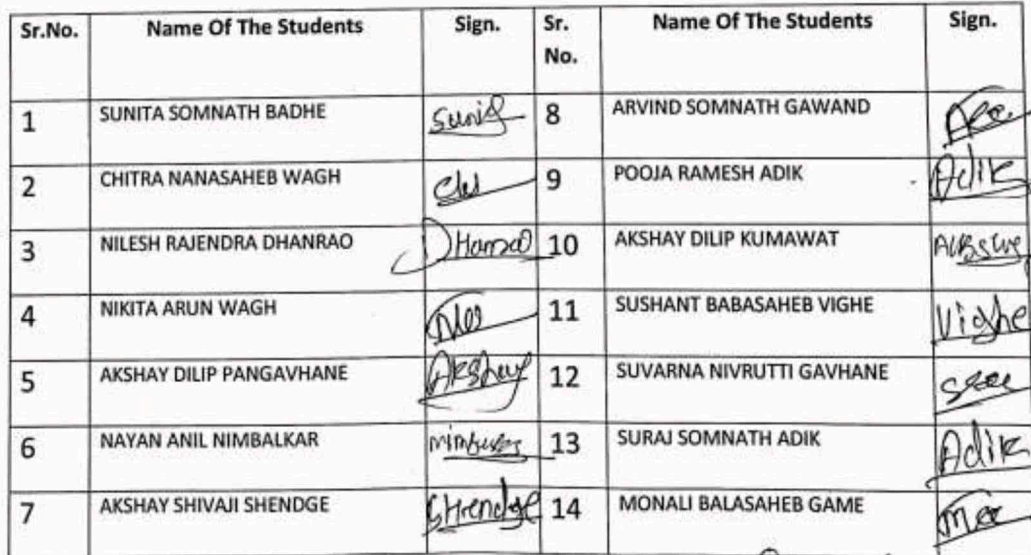 Sr.No. Name Of The Students Sign. Sr. No. Name Of The Students Sign.
1 SUNITA SOMNATH BADHE Sunit 8 ARVIND SOMNATH GAWAND
2 CHITRA NANASAHEB WAGH 9 POOJA RAMESH ADIK Adik
3 NILESH RAJENDRA DHANRAO 10 AKSHAY DILIP KUMAWAT
4 NIKITA ARUN WAGH 11 SUSHANT BABASAHEB VIGHE Vighe
5 AKSHAY DILIP PANGAVHANE Akshay 12 SUVARNA NIVRUTTI GAVHANE
6 NAYAN ANIL NIMBALKAR 13 SURAJ SOMNATH ADIK Adik
7 AKSHAY SHIVAJI SHENDGE SHendge 14 MONALI BALASAHEB GAME